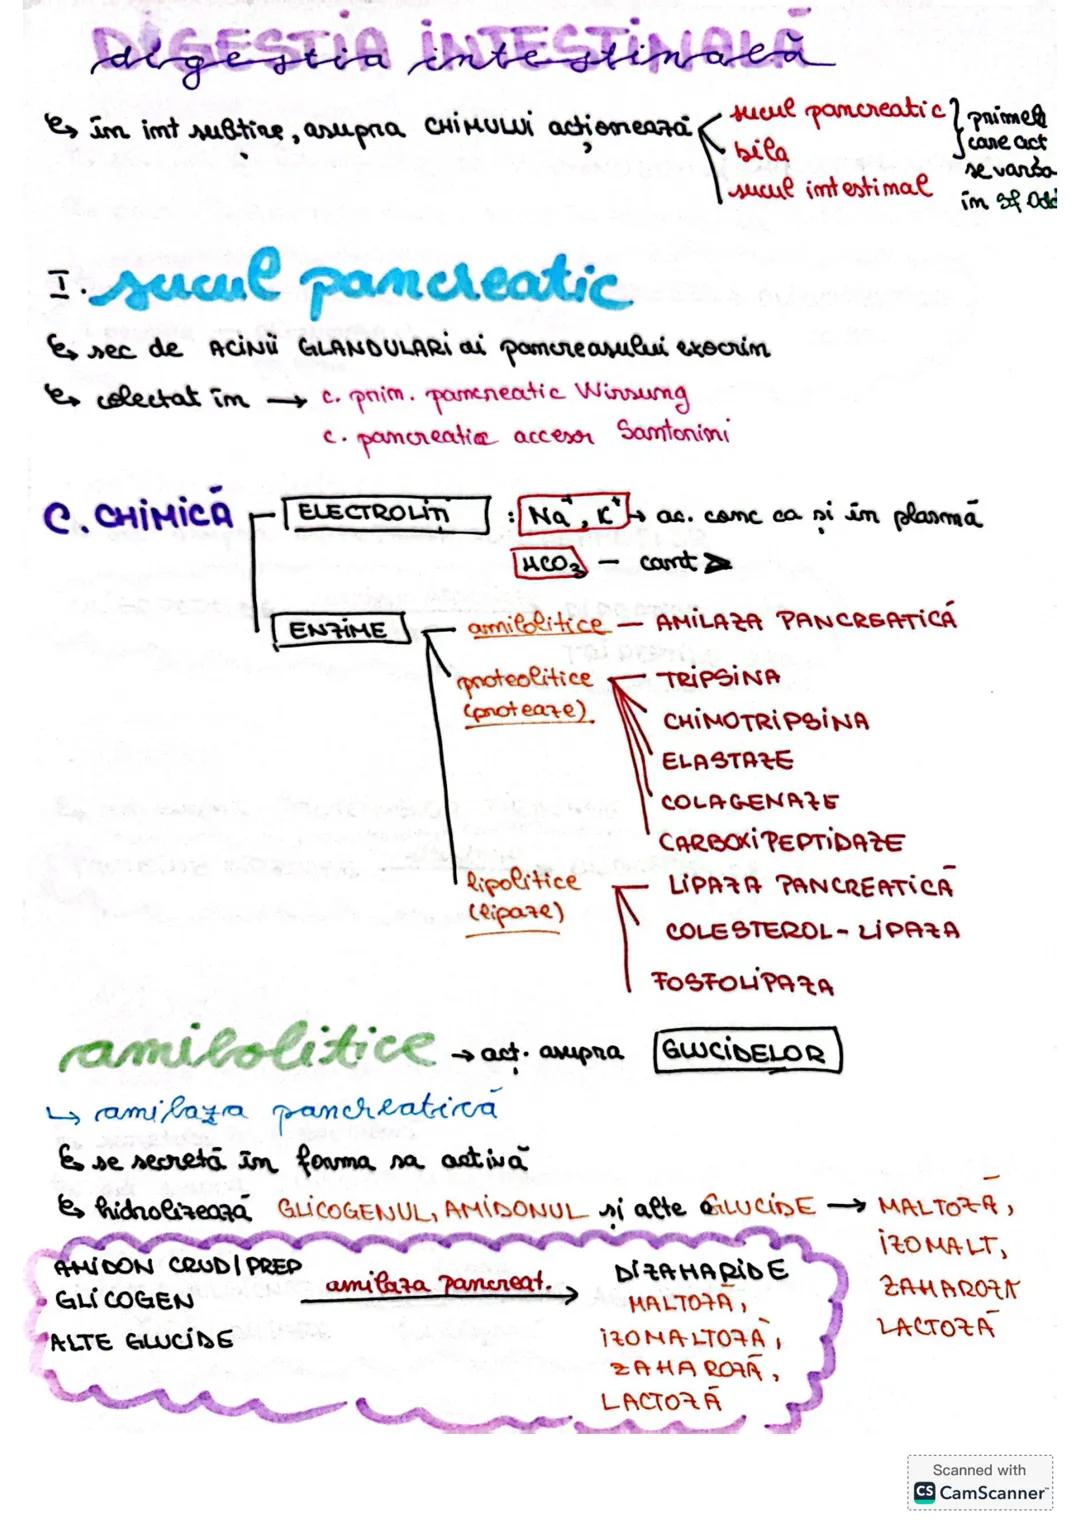 DIGESTIA INTESTINALĂ
digestia intestinală
în int subțire, asupra CHIMULUI acționează
sucul pancreatic
bila
sucul intestinal
primele
care act
se varsă
în Sf Odd
I. sucul pancreatic
sec de ACINII GLANDULARI ai pancreasului exocrin
colectat în → c. prim. pancreatic Wirsung
c. pancreatic accesor Santorini
C. CHIMICĂ
ELECTROLIȚI : Na⁺, K⁺ → ac. conc ca și în plasmă
HCO₃ - cant >
ENZIME
amilolitice — AMILAZA PANCREATICĂ
proteolitice — TRIPSINA
(proteaze)
CHIMOTRIPSINA
ELASTAZE
COLAGENAZE
CARBOXIPEPTIDAZE
lipolitice — LIPAZA PANCREATICĂ
(lipaze)
COLESTEROL-LIPAZA
FOSFOLIPAZA
amilolitice → acț. asupra GLUCIDELOR
↳ amilaza pancreatică
se secretă în forma sa activă
hidrolizează GLICOGENUL, AMIDONUL și alte GLUCIDE → MALTOZĂ,
IZOMALT,
ZAHAROZĂ
LACTOZĂ
AMIDON CRUD/PREP
GLICOGEN
ALTE GLUCIDE
amilaza pancreat.
DIZAHARIDE
MALTOZĂ,
IZOMALTOZĂ,
ZAHAROZĂ,
LACTOZĂ
Scanned with
CS CamScanner